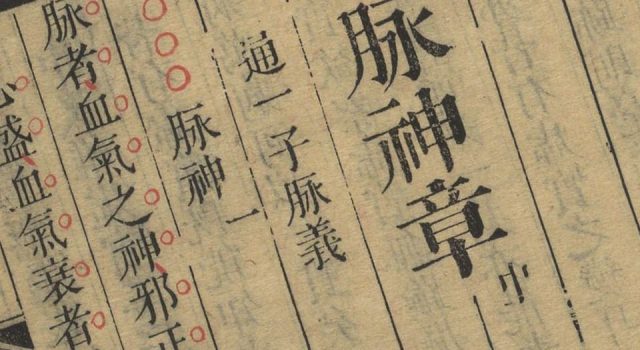 脉神章 中
通一子脉義
脉神一
脉者血氣之神邪正
盛血氣衰者